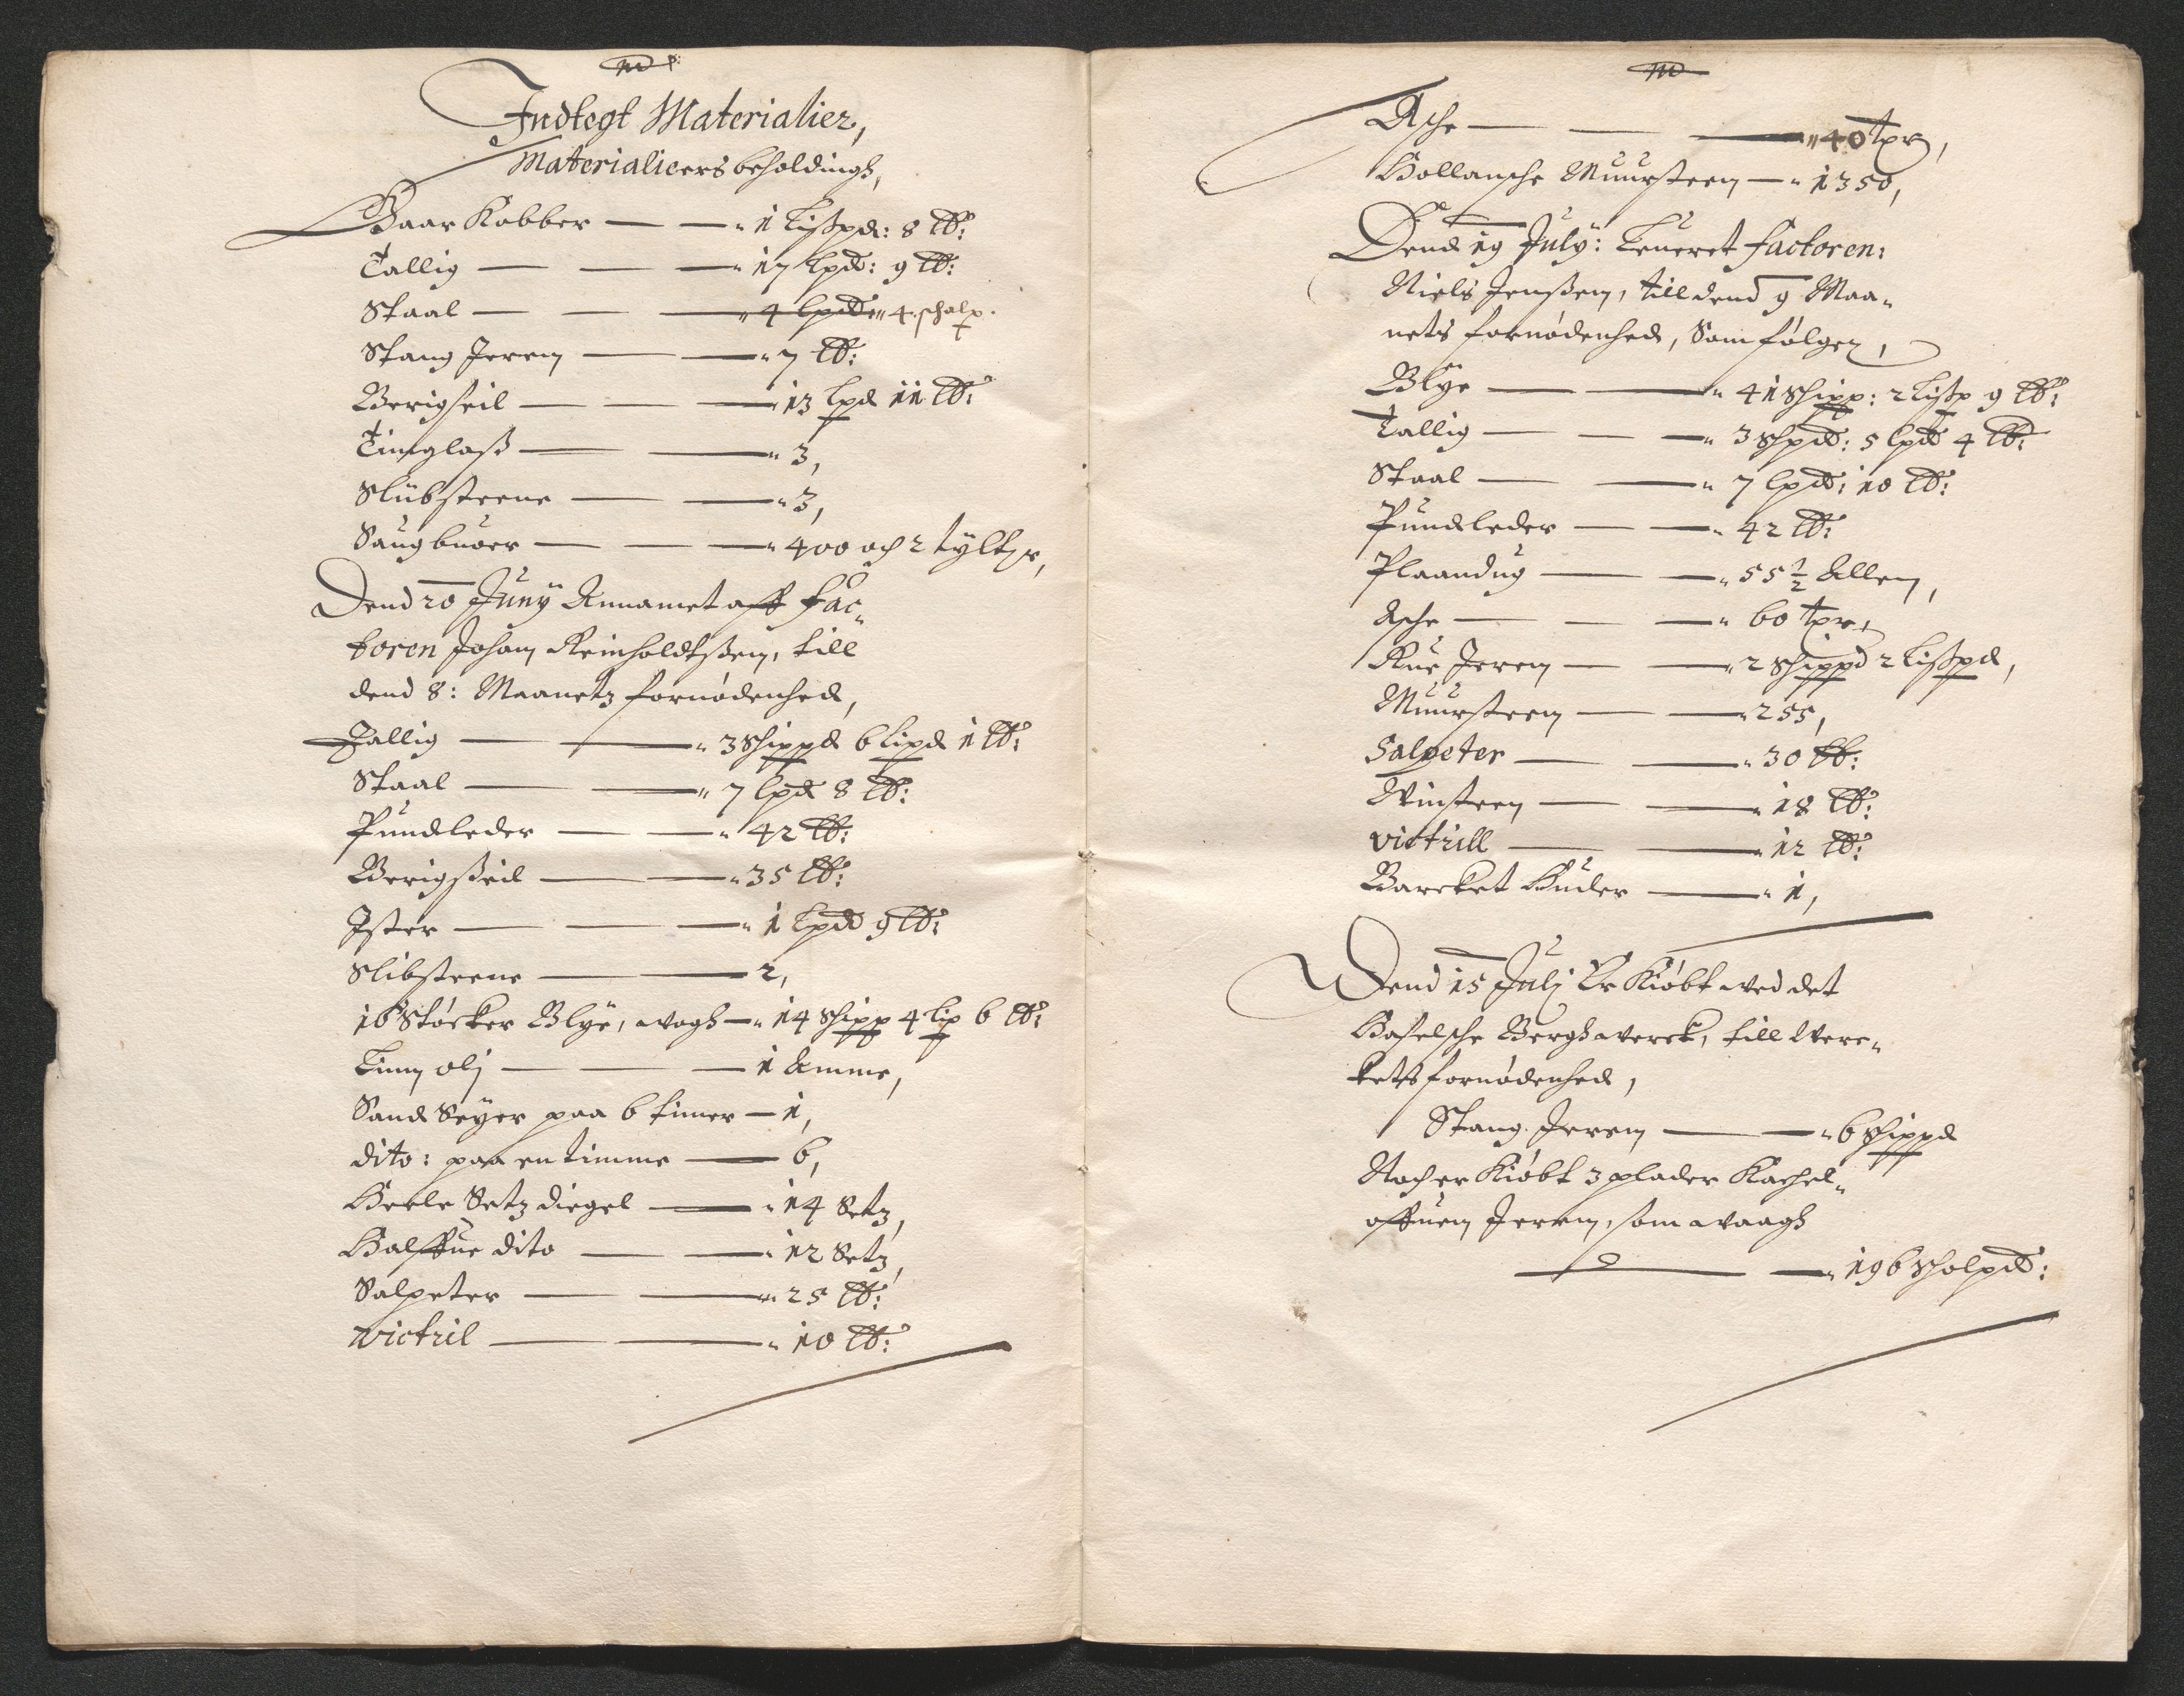 Indtegt Materialier,
Materialieers beholdingh,
Gaar Kobber — — „ 1 Lißpd: 8 ℔:
Tallig — — — „ 17 lpd: 9 ℔:
Staal — — „ 4 lpd: „ 4 schalp.
Stang Jeren — — „ 7 ℔:
Berigseil — — „ 13 lpd 11 ℔:
Timglaß — — „ 3,
Slübsteene — — „ 3,
Saugbuoer — — — „ 400 och 2 tylter,
Dend 20 Juny Annamet aff Fac„
toren Johan Reinholdtßen, till
dend 8: Maanetz fornødenhed,
Tallig — — „ 3 Shippd 6 Lipd 1 ℔:
Staal — — „ 7 lpd 8 ℔:
Pundleder — — „ 42 ℔:
Berigßeil — — „ 35 ℔:
Ister — — — „ 1 Lpd 9 ℔:
Slibsteene — — 2,
16 Støcker Blye, wogh — „ 14 Shipp 4 Lip 6 ℔:
Linn olj — — — 1 Amme,
Sand Seyer paa 6 timer — 1,
dito: paa en timme — 6,
Heele Setz diegel — „ 14 Setz,
Halffue dito — — „ 12 Setz,
Salpeter — — „ 25 ℔:
victril — — „ 10 ℔:
Asche — — — „ 40 tpr,
Hollansche Muursteen — „ 1350,
Dend 19 July: Leueret factoren:
Niels Jenßen, till dend 9 Maa„
nets fornødenhed, Som følger,
Blye — — „ 41 Shipp: 2 Lißp 9 ℔:
Tallig — — — „ 3 Shpd: 5 lpd 4 ℔:
Staal — — „ 7 lpd: 10 ℔:
Pundleder — — „ 42 ℔:
Plaandug — — „ 55 ½ Allen,
Asche — — — „ 60 tpr,
Rue Jeren — — „ 2 Shippd 2 Lißpd,
Muursteen — — „ 255,
Salpeter — — „ 30 ℔:
Winsteen — — „ 18 ℔:
victrill — — „ 12 ℔:
Barcket Huder — „ 1,
Dend 15 Julj Er Kiøbt wed det
Hafelsche Berghwerck, till Werc„
ketts fornødenhed,
Stang Jeren — — „ 6 Shippd
Noch er Kiøbt 3 plader Kachel„
offuen Jeren, som waagh
— — „ 196 Sholpd: